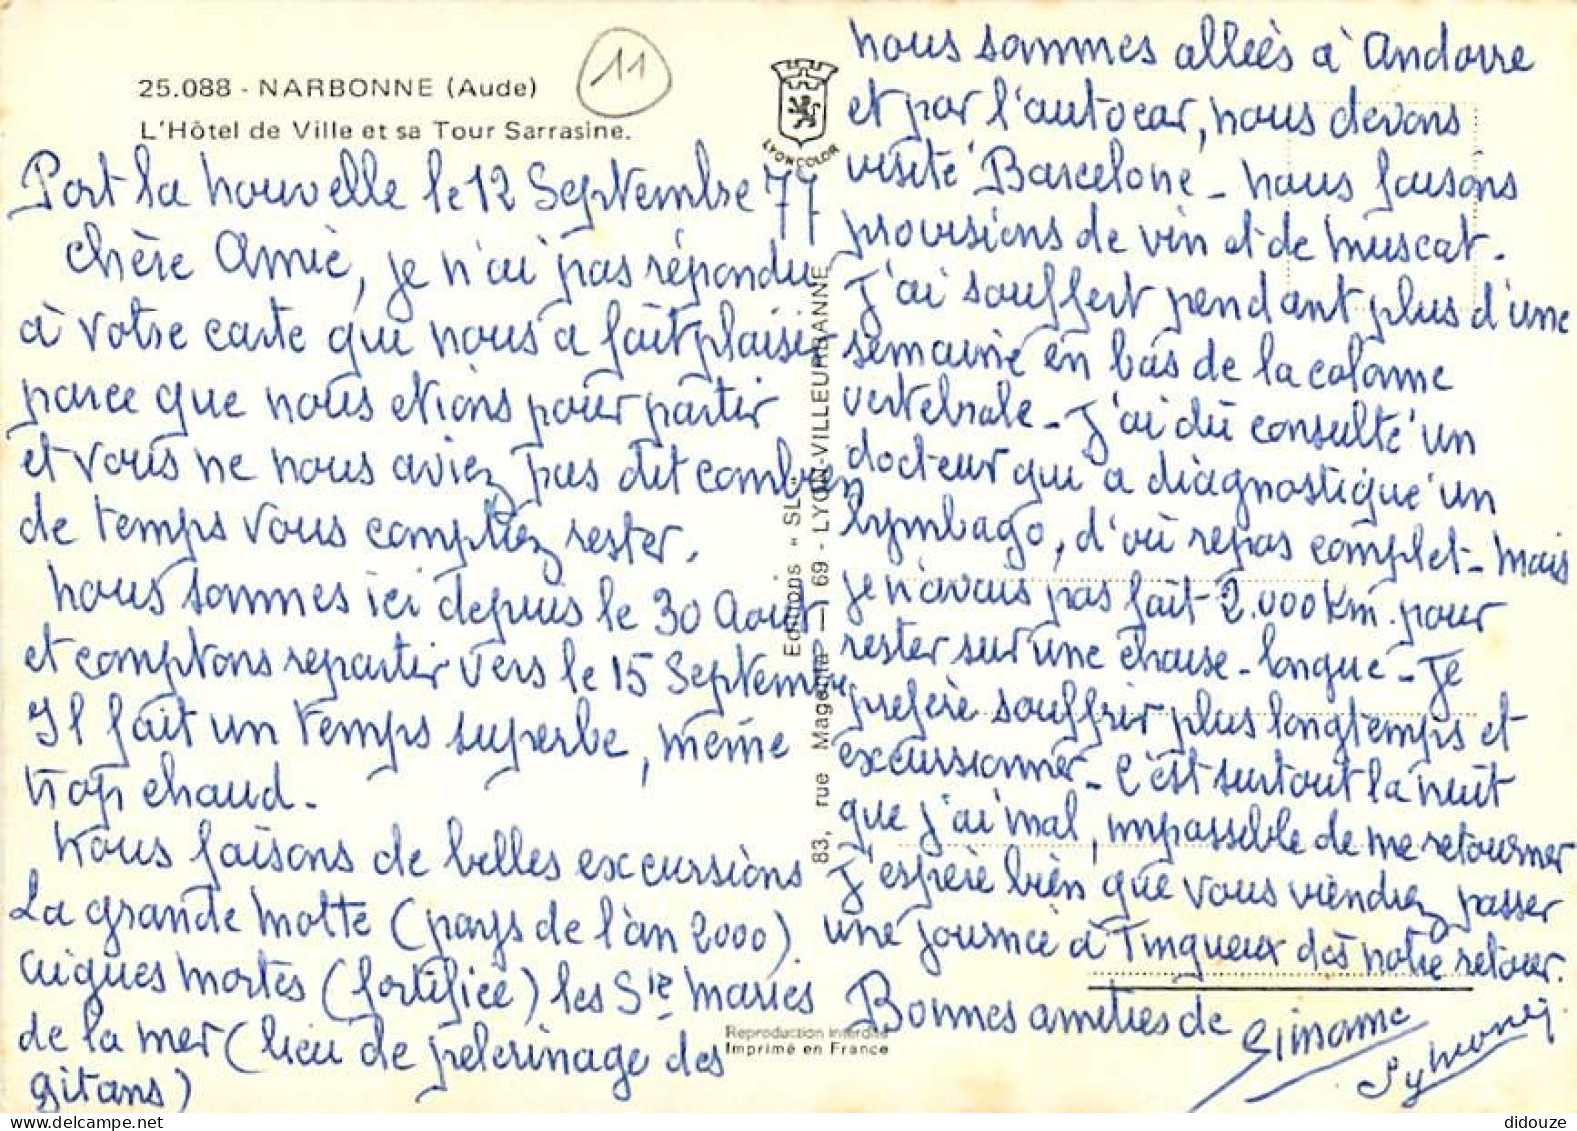 25.088 - NARBONNE (Aude)
L'Hôtel de Ville et sa Tour Sarrasine.
11
LYONCOLOR
Port la nouvelle le 12 Septembre 77
Chère Amie, je n'ai pas répondu
à votre carte qui nous a fait plaisir
parce que nous etions pour partir
et vous ne nous aviez pas dit combien
de temps vous comptiez rester.
nous sommes ici depuis le 30 Aout
et comptons repartir vers le 15 Septembre
Il fait un temps superbe, même
trop chaud -
Nous faisons de belles excursions
La grande Motte (pays de l'an 2000)
aigues mortes (fortifiée) les Stes Maries
de la mer (lieu de pelerinage des
gitans)
Editions "SL"
83, rue Magenta — 69 - LYON-VILLEURBANNE
Reproduction Interdite
Imprimé en France
nous sommes allées à Andorre
et par l'autocar, nous devons
visité Barcelone - nous faisons
provisions de vin et de muscat.
J'ai souffert pendant plus d'une
semaine en bas de la colonne
vertebrale - J'ai dû consulté un
docteur qui a diagnostiqué un
lymbago, d'où repas complet - Mais
je n'avais pas fait 2.000 km. pour
rester sur une chaise-longue - Je
préfère souffrir plus longtemps et
excursionner - C'est surtout la nuit
que j'ai mal, impasseble de me retourner
J'espère bien que vous viendrez passer
une journée à Tinqueux dès notre retour.
Bonnes amitiés de Simone
didouze